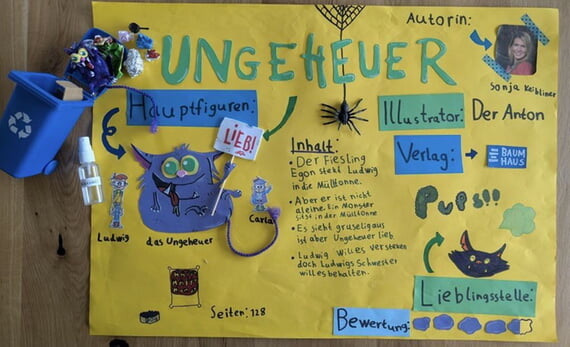 UNGEHEUER
Autorin:
Sonja Kaiblinger
Hauptfiguren:
LIEB!
Ludwig
das Ungeheuer
Carla
Seiten: 128
Inhalt:
• Der Fiesling
Egon stekt Ludwig
in die Mülltonne.
• Aber er ist nicht
aleine. Ein Monster
sitzt in der Mülltonne
• Es sieht gruselig aus
ist aber Ungeheuer lieb
• Ludwig will es versteken
doch Ludwigs Schwester
will es behalten.
Illustrator: Der Anton
Verlag:
BAUM
HAUS
Pups!!
Lieblingsstelle:
Bewertung: